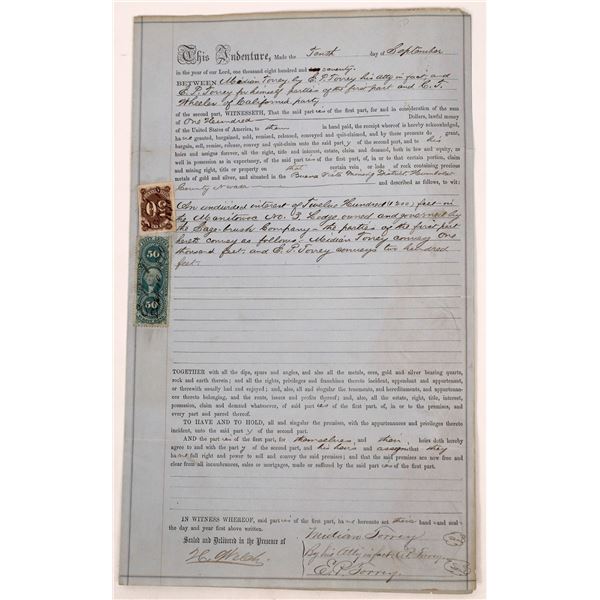 This Indenture, Made the Tenth day of September
in the year of our Lord, one thousand eight hundred and seventy.
BETWEEN Median Torrey by E. P. Torrey his atty in fact and
E. P. Torrey for himself parties of the first part and
Wheeler of California party
of the second part, WITNESSETH, That the said parties of the first part, for and in consideration of the sum
of One Hundred Dollars, lawful money
of the United States of America, to them in hand paid, the receipt whereof is hereby acknowledged,
have granted, bargained, sold, remised, released, conveyed and quit-claimed, and by these presents do grant,
bargain, sell, remise, release, convey and quit-claim unto the said party of the second part, and to his
heirs and assigns forever, all the right, title and interest, estate, claim and demand, both in law and equity, as
well in possession as in expectancy, of the said parties of the first part, of, in or to that certain portion, claim
and mining right, title or property on that certain vein or lode of rock containing precious
metals of gold and silver, and situated in the Buena Vista Mining District Humboldt
County Nevada and described as follows, to wit:
An undivided interest of Twelve Hundred (1200) feet in
the Manitowoc No. 3 Ledge owned and governed by
the Sage-brush Company - the parties of the first part
hereto convey as follows: Median Torrey conveys One
thousand feet and E. P. Torrey conveys two hundred
feet.
50
50
50
TOGETHER with all the dips, spurs and angles, and also all the metals, ores, gold and silver bearing quartz,
rock and earth therein; and all the rights, privileges and franchises thereto incident, appendant and appurtenant,
or therewith usually had and enjoyed; and also, all and singular the tenements, hereditaments and appurten-
ances thereto belonging, and the rents, issues and profits thereof; and also, all the estate, right, title, interest,
possession, claim and demand whatsoever, of said parties of the first part, of, in or to the premises, and
every part and parcel thereof.
TO HAVE AND TO HOLD, all and singular the premises, with the appurtenances and privileges thereto
incident, unto the said party of the second part.
AND the parties of the first part, for themselves and their heirs doth hereby
agree to and with the party of the second part, and his heirs and assigns that they
have full right and power to sell and convey the said premises; and that the premises are now free and
clear from all incumbrances, sales or mortgages, made or suffered by the said parties of the first part.
IN WITNESS WHEREOF, said parties of the first part, have hereunto set their hand and seal
the day and year first above written.
Sealed and Delivered in the Presence of
Median Torrey
By his Atty in fact E. P. Torrey
E. P. Torrey.